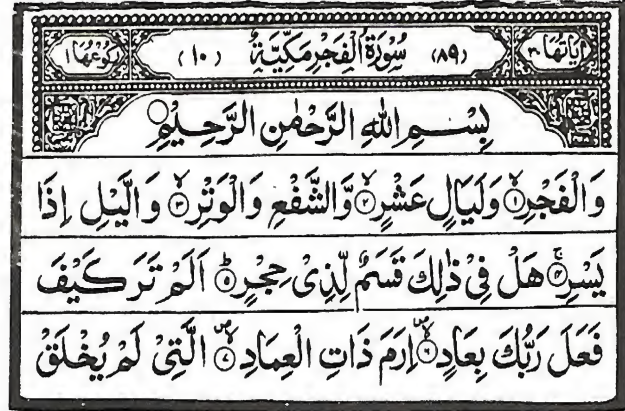 اٰیَاتُهَا ٣٠ (٨٩) سُوْرَةُ الْفَجْرِ مَكِّیَّةٌ (١٠) رُكُوْعُهَا ١
بِسْمِ اللّٰهِ الرَّحْمٰنِ الرَّحِیْمِ
وَالْفَجْرِۙ۝١ وَلَیَالٍ عَشْرٍۙ۝٢ وَّالشَّفْعِ وَالْوَتْرِۙ۝٣ وَالَّیْلِ اِذَا
یَسْرِۚ۝٤ هَلْ فِیْ ذٰلِكَ قَسَمٌ لِّذِیْ حِجْرٍؕ۝٥ اَلَمْ تَرَ كَیْفَ
فَعَلَ رَبُّكَ بِعَادٍ۪ۙ۝٦ اِرَمَ ذَاتِ الْعِمَادِ۪ۙ۝٧ الَّتِیْ لَمْ یُخْلَقْ